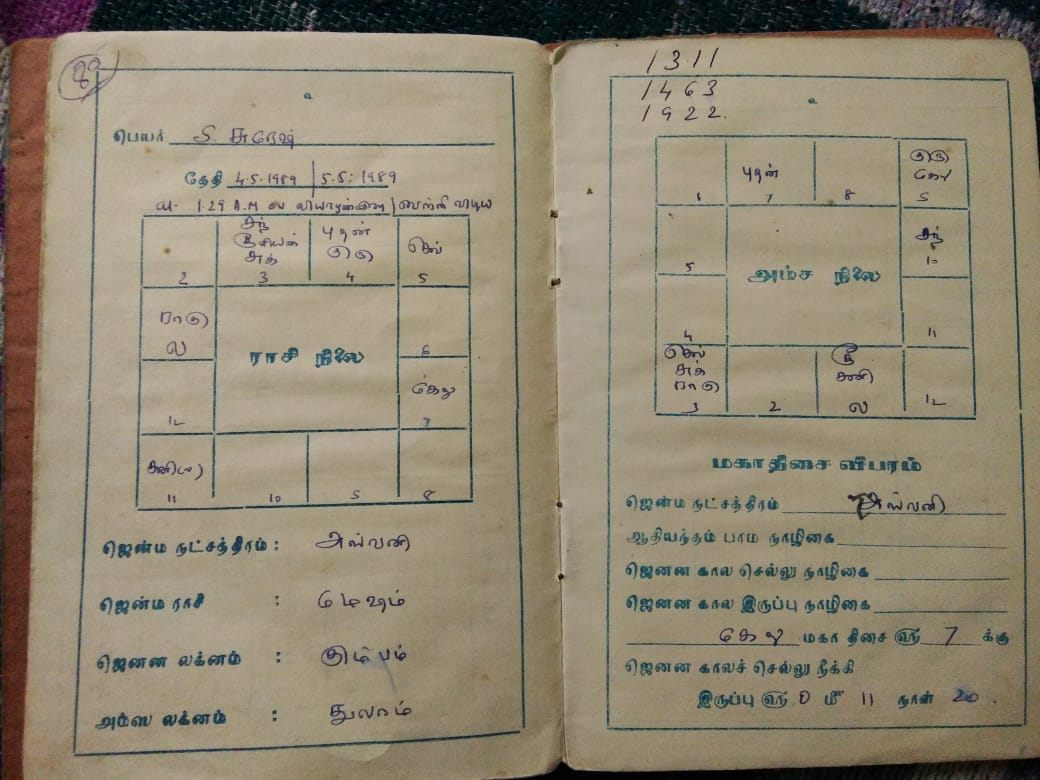 உ
பெயர் S. சுரேஷ்
தேதி 4.5.1989 / 5.5.1989
1.29 A.M வியாழன் வெள்ளி விடிய
சந் சூரியன் சுக் 3
புதன் குரு 4
செவ் 5
2
ராகு ல
ராசி நிலை
6
12
கேது 7
சனி(வ) 11
10
9
8
ஜென்ம நட்சத்திரம் : அஸ்வனி
ஜென்ம ராசி : மேஷம்
ஜெனன லக்னம் : கும்பம்
அம்ஸ லக்னம் : துலாம்
1311
1463
1922.
உ
6
புதன் 7
8
குரு கேது 9
5
அம்ச நிலை
சந் 10
4
11
செவ் சுக் ராகு 3
2
சூ சனி ல
12
மகாதிசை விபரம்
ஜென்ம நட்சத்திரம் அஸ்வனி
ஆதியந்தம் பரம நாழிகை
ஜெனன கால செல்லு நாழிகை
ஜெனன கால இருப்பு நாழிகை
கேது மகா திசை ௵ 7 க்கு
ஜெனன காலச் செல்லு நீக்கி
இருப்பு ௵ 0 மீ 11 நாள் 20.